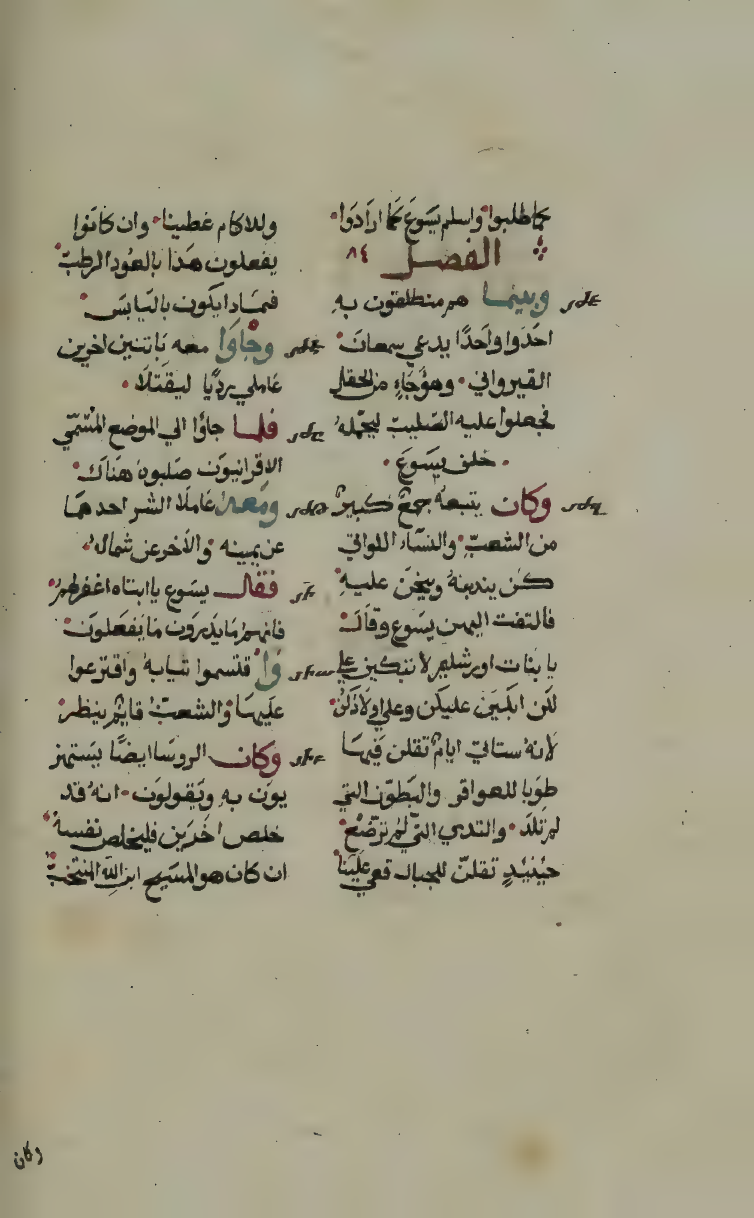 كما طلبوا واسلم يسوع كما ارادوا
الفصل ٨٤
وبينما هم منطلقون به
اخذوا واحدًا يدعي سمعان
القيرواني وهو جاءٍ من الحقل
فجعلوا عليه الصليب ليحمله
خلف يسوع
وكان يتبعه جمع كبير
من الشعب والنساء اللواتي
كن يندبنه وينحن عليه
فالتفت اليهن يسوع وقال
يا بنات اورشليم لا تبكين علي
لكن ابكين عليكن وعلي اولادكن
لانه ستاتي ايام تقلن فيها
طوبا للعواقر والبطون التي
لم تلد والثدي التي لم ترضع
حينيدٍ تقلن للجبال قعي علينا
وللاكام غطينا وان كانوا
يفعلون هذا بالعود الرطب
فماذا يكون باليابس
وجاوا معه باثنين اخرين
عاملي رديًا ليقتلا
فلما جاوا الي الموضع المسمي
الاقرانيون صلبوه هناك
ومعه عاملا الشر احدهما
عن يمينه والاخر عن شماله
فقال يسوع يا ابتاه اغفر لهم
فانهم ما يدرون ما يفعلون
واقتسموا ثيابه واقترعوا
عليها والشعب قايم ينظر
وكان الروسا ايضًا يستهز
يون به ويقولون انه قد
خلص اخرين فليخلص نفسه
ان كان هو المسيح ابن الله المنتخب
وكان